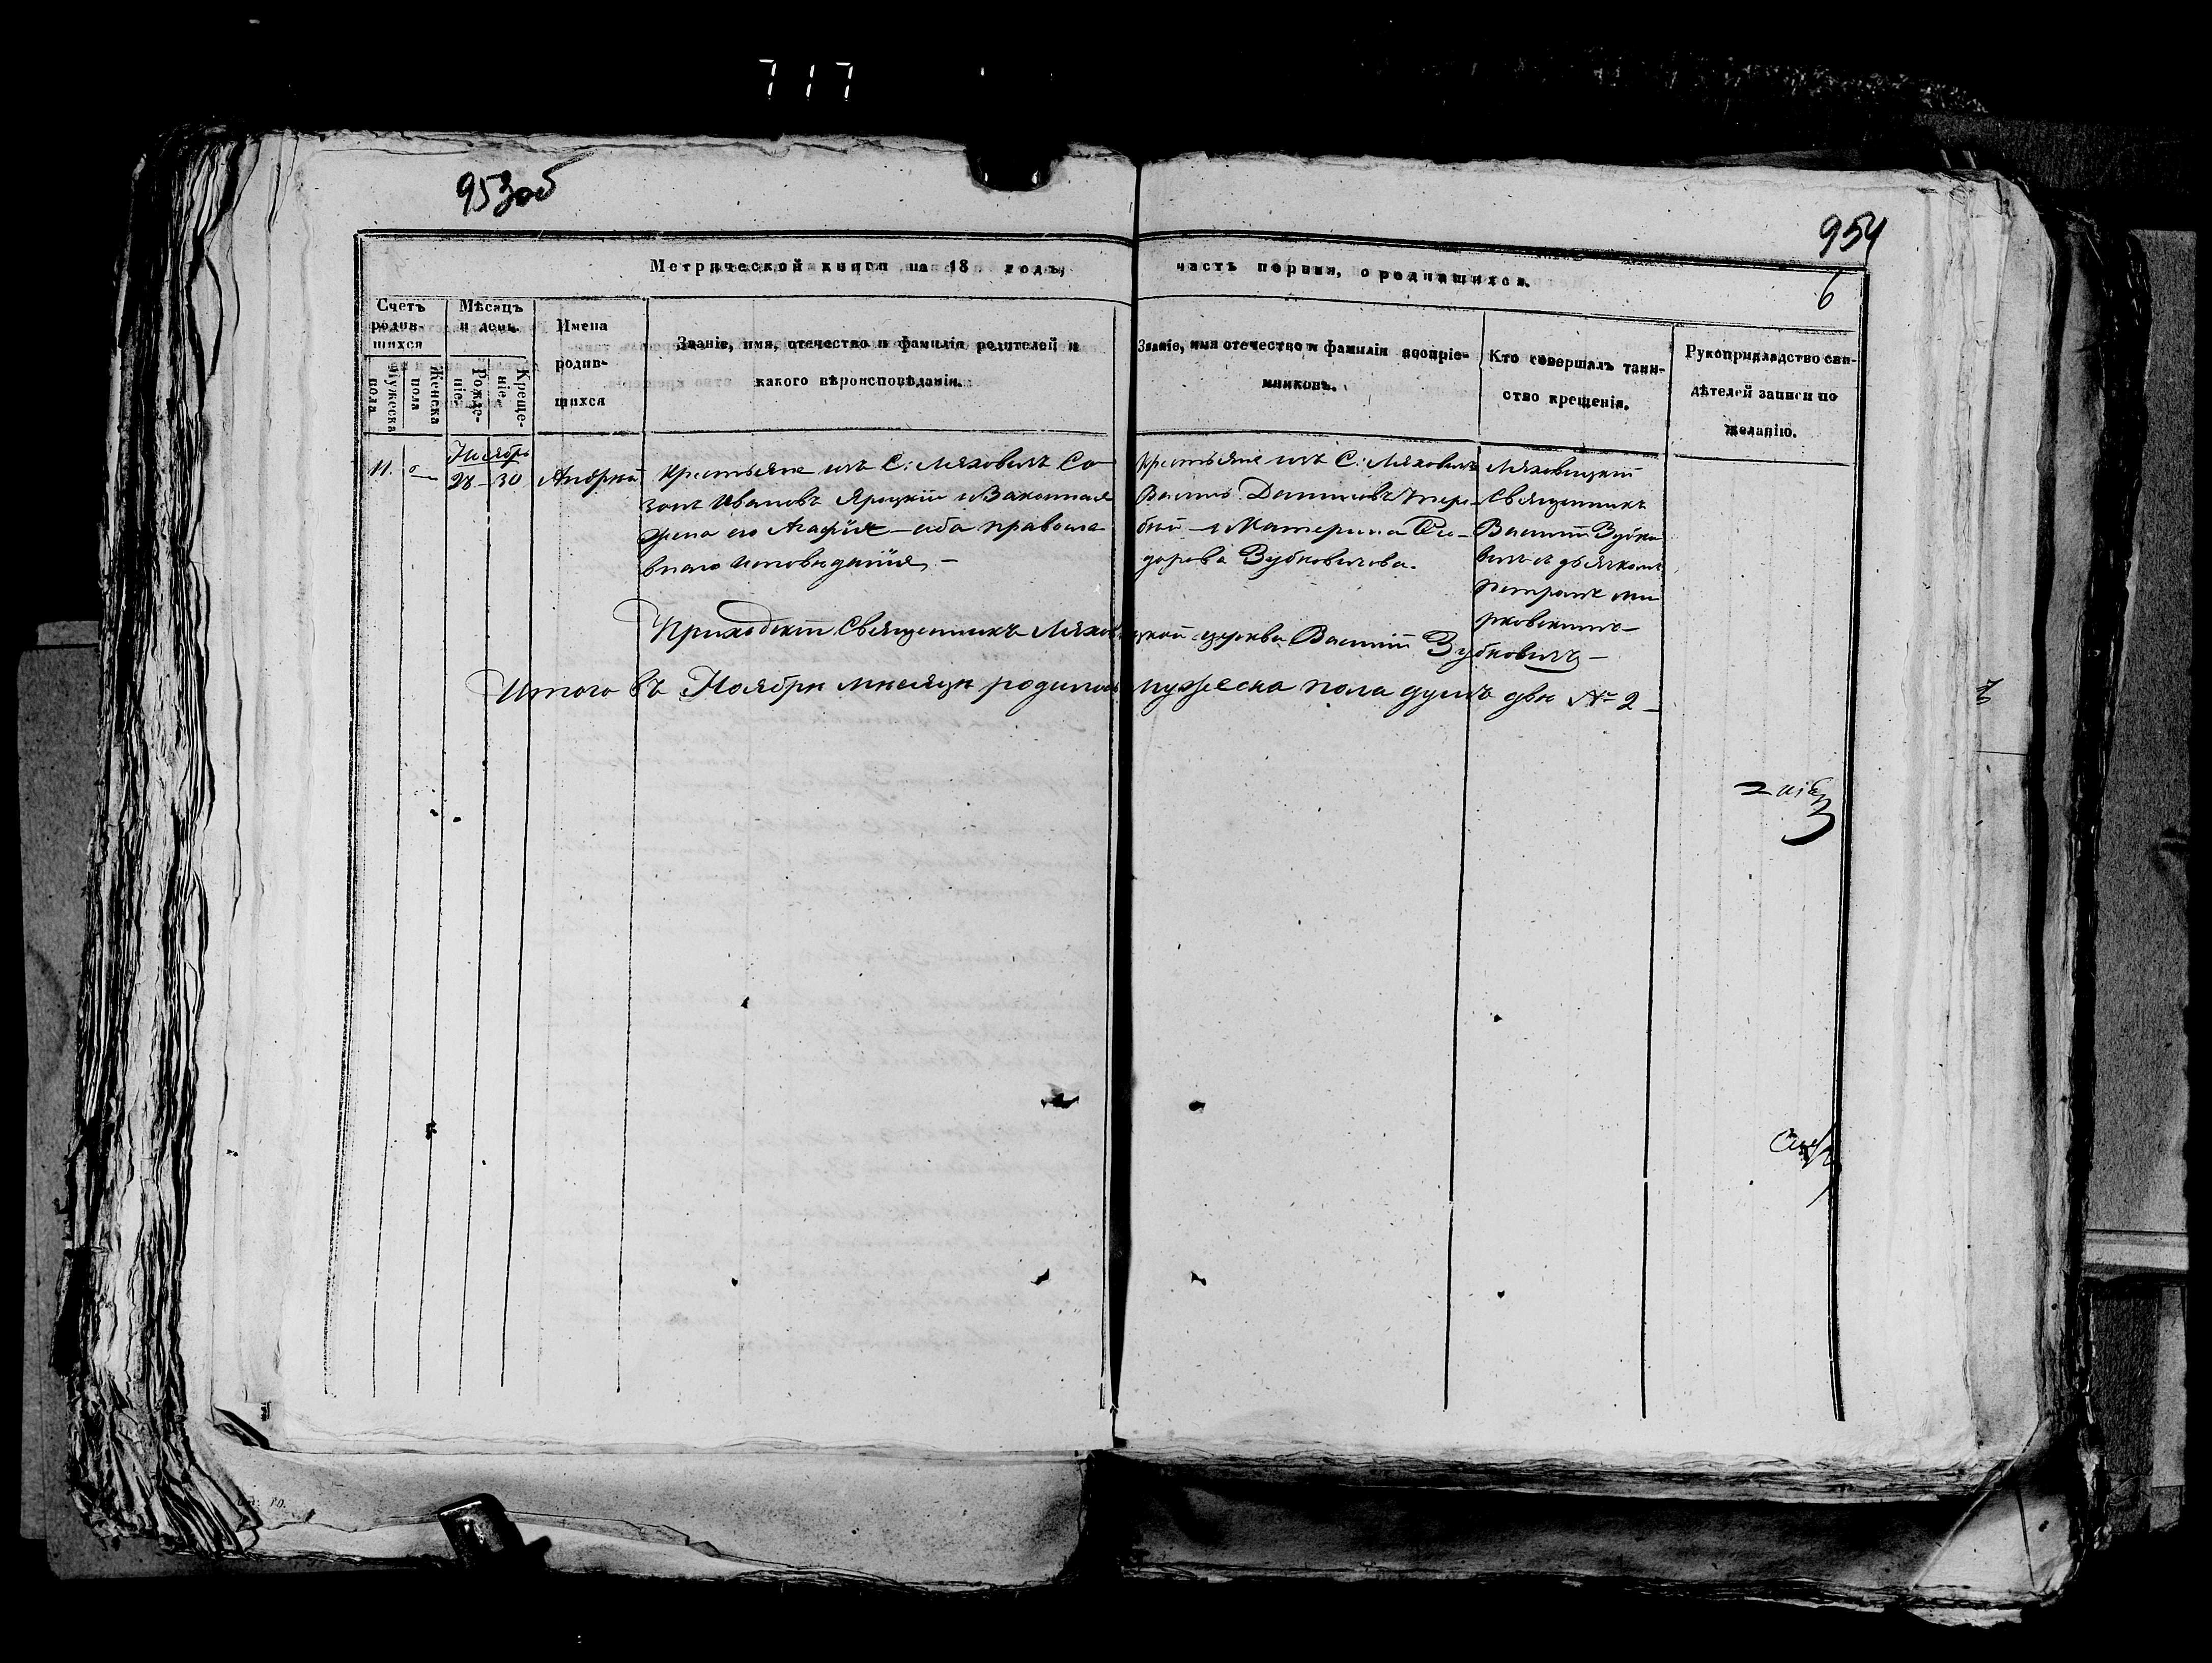 717
953об
954
6
Метрической книги на 18 годъ, часть первая, о родившихся.
Счетъ родив-
шихся
Мѣсяцъ
и день.
Мужеска
пола
Женска
пола
Рожде-
ніе.
Креще-
ніе.
Имена
родив-
шихся
Званіе, имя, отечество и фамилія родителей и
какого вѣроисповѣданія.
Званіе, имя отечество и фамилія воспріе-
мниковъ.
Кто совершалъ таин-
ство крещенія.
Рукоприкладство сви-
дѣтелей записи по
желанію.
11.
Ноябрь
28 30
Андрей
Крестьяне изъ С: Ляховичъ Со
зонъ Ивановъ Ярицкій и Законная
жена его Агафія — оба правосла
внаго исповеданія, —
Крестьяне изъ С: Ляховичъ
Василь Даниловъ
и Катерина Фео-
дорова Зубковичова.
Ляховицкій
Священникъ
Василій Зубко
вичъ съ дьячкомъ
Петромъ Ми
рковскимъ —
Приходскій Священникъ Ляховицкой церкви Василій Зубковичъ —
Итого въ Ноябрѣ мѣсяцѣ родилось мужеска пола душъ двѣ № 2 —